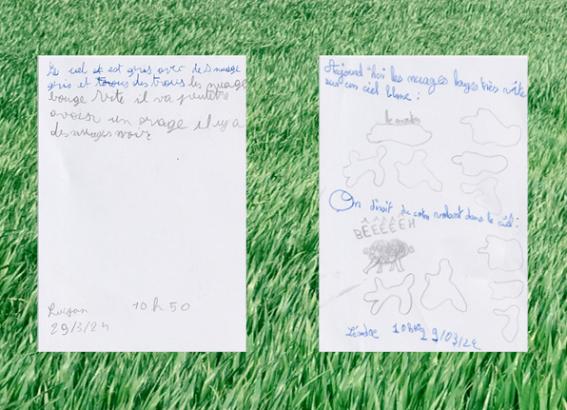 le ciel et est gris avec des nuage
gris et des trous les nuage
bouge vite il va peutetre
avoir un orage il y a
des nuages noir
10 h 50
29/3/24
Aujourd'hoi les nuages bouges très vite
sur un ciel blanc :
le monton
On dirait du coton volant dans le ciel :
BÊÊÊÊÊH
Léandre 10h 29/03/24